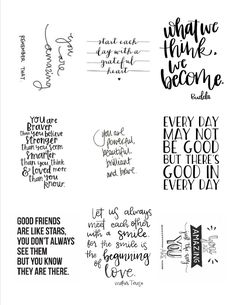 you
are
amazing
REMEMBER THAT.
start each
day with a
grateful
heart
what we
think,
we
become.
Budda
You are
Braver
Than you believe
Stronger
Than you Seem
Smarter
Than you Think
& Loved more
Than you
Know.
you are
powerful,
beautiful,
brilliant
and brave.
EVERY DAY
MAY NOT
BE GOOD
BUT THERE'S
GOOD IN
EVERY DAY
GOOD FRIENDS
ARE LIKE STARS,
YOU DON'T ALWAYS
SEE THEM
BUT YOU KNOW
THEY ARE THERE.
Let us always
meet each other
with a smile
for the smile is
the beginning
of
love.
AMAZING
YOU